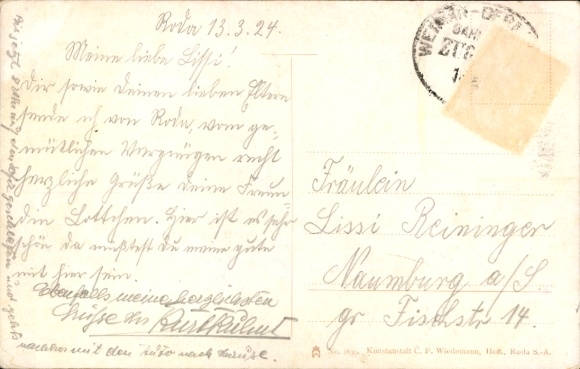 Roda 13.3.24.
Meine liebe Lissi!
Dir sowie deinen lieben Eltern
sende ich von Roda, vom ge-
mütlichen Vergnügen recht
herzliche Grüße deine Freun
din Lottchen. Hier ist es sehr
schön da müßtest Du meine gute
mit hier sein.
Ebenfalls meine herzlichsten
Grüsse Kurt Kühnt
nachher mit den Auto nach Hause.
bis jetzt 8 Uhr und geht's
WEIMAR-GERA
BAHN
ZUG
Fräulein
Lissi Reininger
Naumburg a/S
gr Fischstr 14.
Kunstanstalt C. F. Wiedemann, Hofl., Roda S.-A.